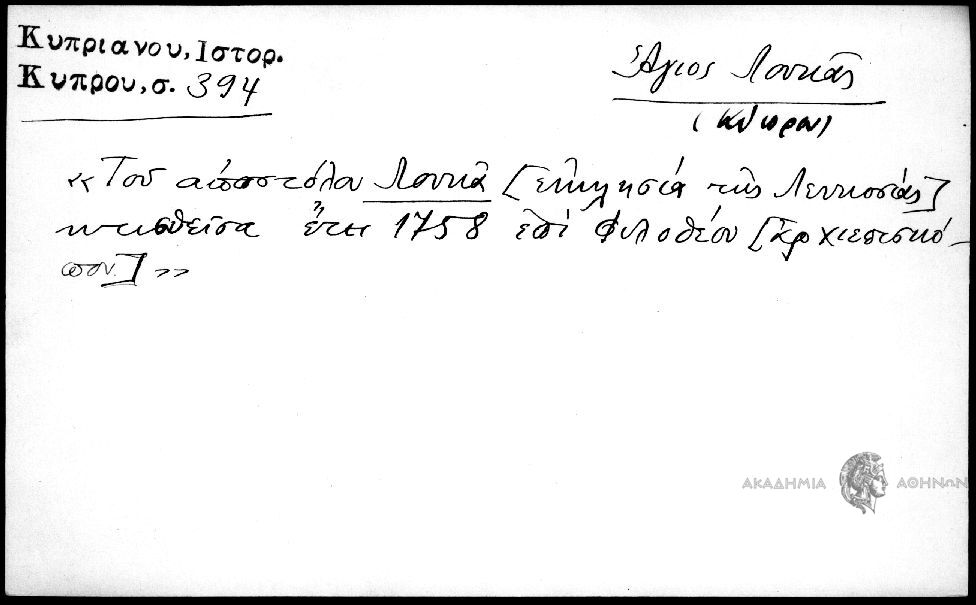 Κυπριανου, Ιστορ.
Κυπρου, σ. 394
Ἅγιος Λουκᾶς
(Κύπρου)
«Τοῦ ἀποστόλου Λουκᾶ [ἐκκλησία τῆς Λευκοσίας]
κτισθεῖσα ἔτει 1758 ἐπὶ Φιλοθέου [ἀρχιεπισκό-
που.]»
ΑΚΑΔΗΜΙΑ ΑΘΗΝΩΝ